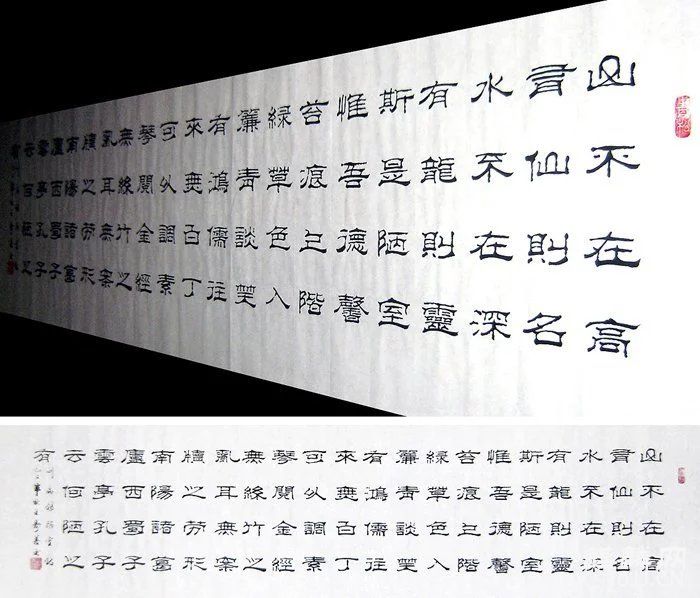 山不在高
有仙則名
水不在深
有龍則靈
斯是陋室
惟吾德馨
苔痕上階
綠草色入
簾青談笑
有鴻儒往
來無白丁
可以調素
琴閱金經
無絲竹之
亂耳無案
牘之勞形
南陽諸葛
廬西蜀子
雲亭孔子
云何陋之
有
山不在高
有仙則名
水不在深
有龍則靈
斯是陋室
惟吾德馨
苔痕上階
綠草色入
簾青談笑
有鴻儒往
來無白丁
可以調素
琴閱金經
無絲竹之
亂耳無案
牘之勞形
南陽諸葛
廬西蜀子
雲亭孔子
云何陋之
有